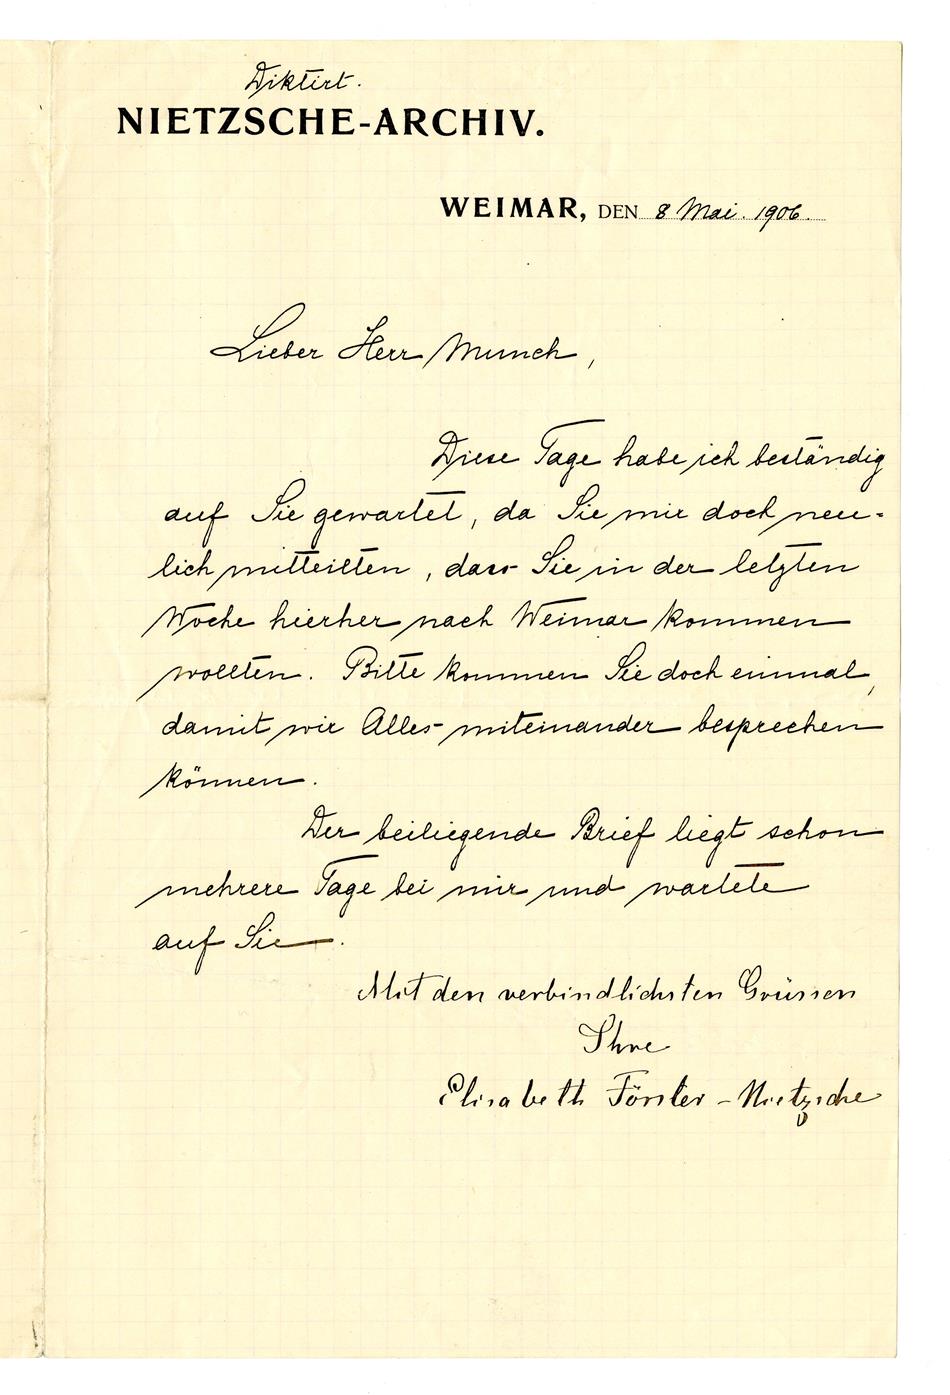 Diktirt.
NIETZSCHE-ARCHIV.
WEIMAR, DEN 8 Mai. 1906.
Lieber Herr Munch,
Diese Tage habe ich beständig
auf Sie gewartet, da Sie mir doch neu-
lich mitteilten, dass Sie in der letzten
Woche hierher nach Weimar kommen
wollten. Bitte kommen Sie doch einmal,
damit wir Alles miteinander besprechen
können.
Der beiliegende Brief liegt schon
mehrere Tage bei mir und wartete
auf Sie.
Mit den verbindlichsten Grüssen
Ihre
Elisabeth Förster-Nietzsche